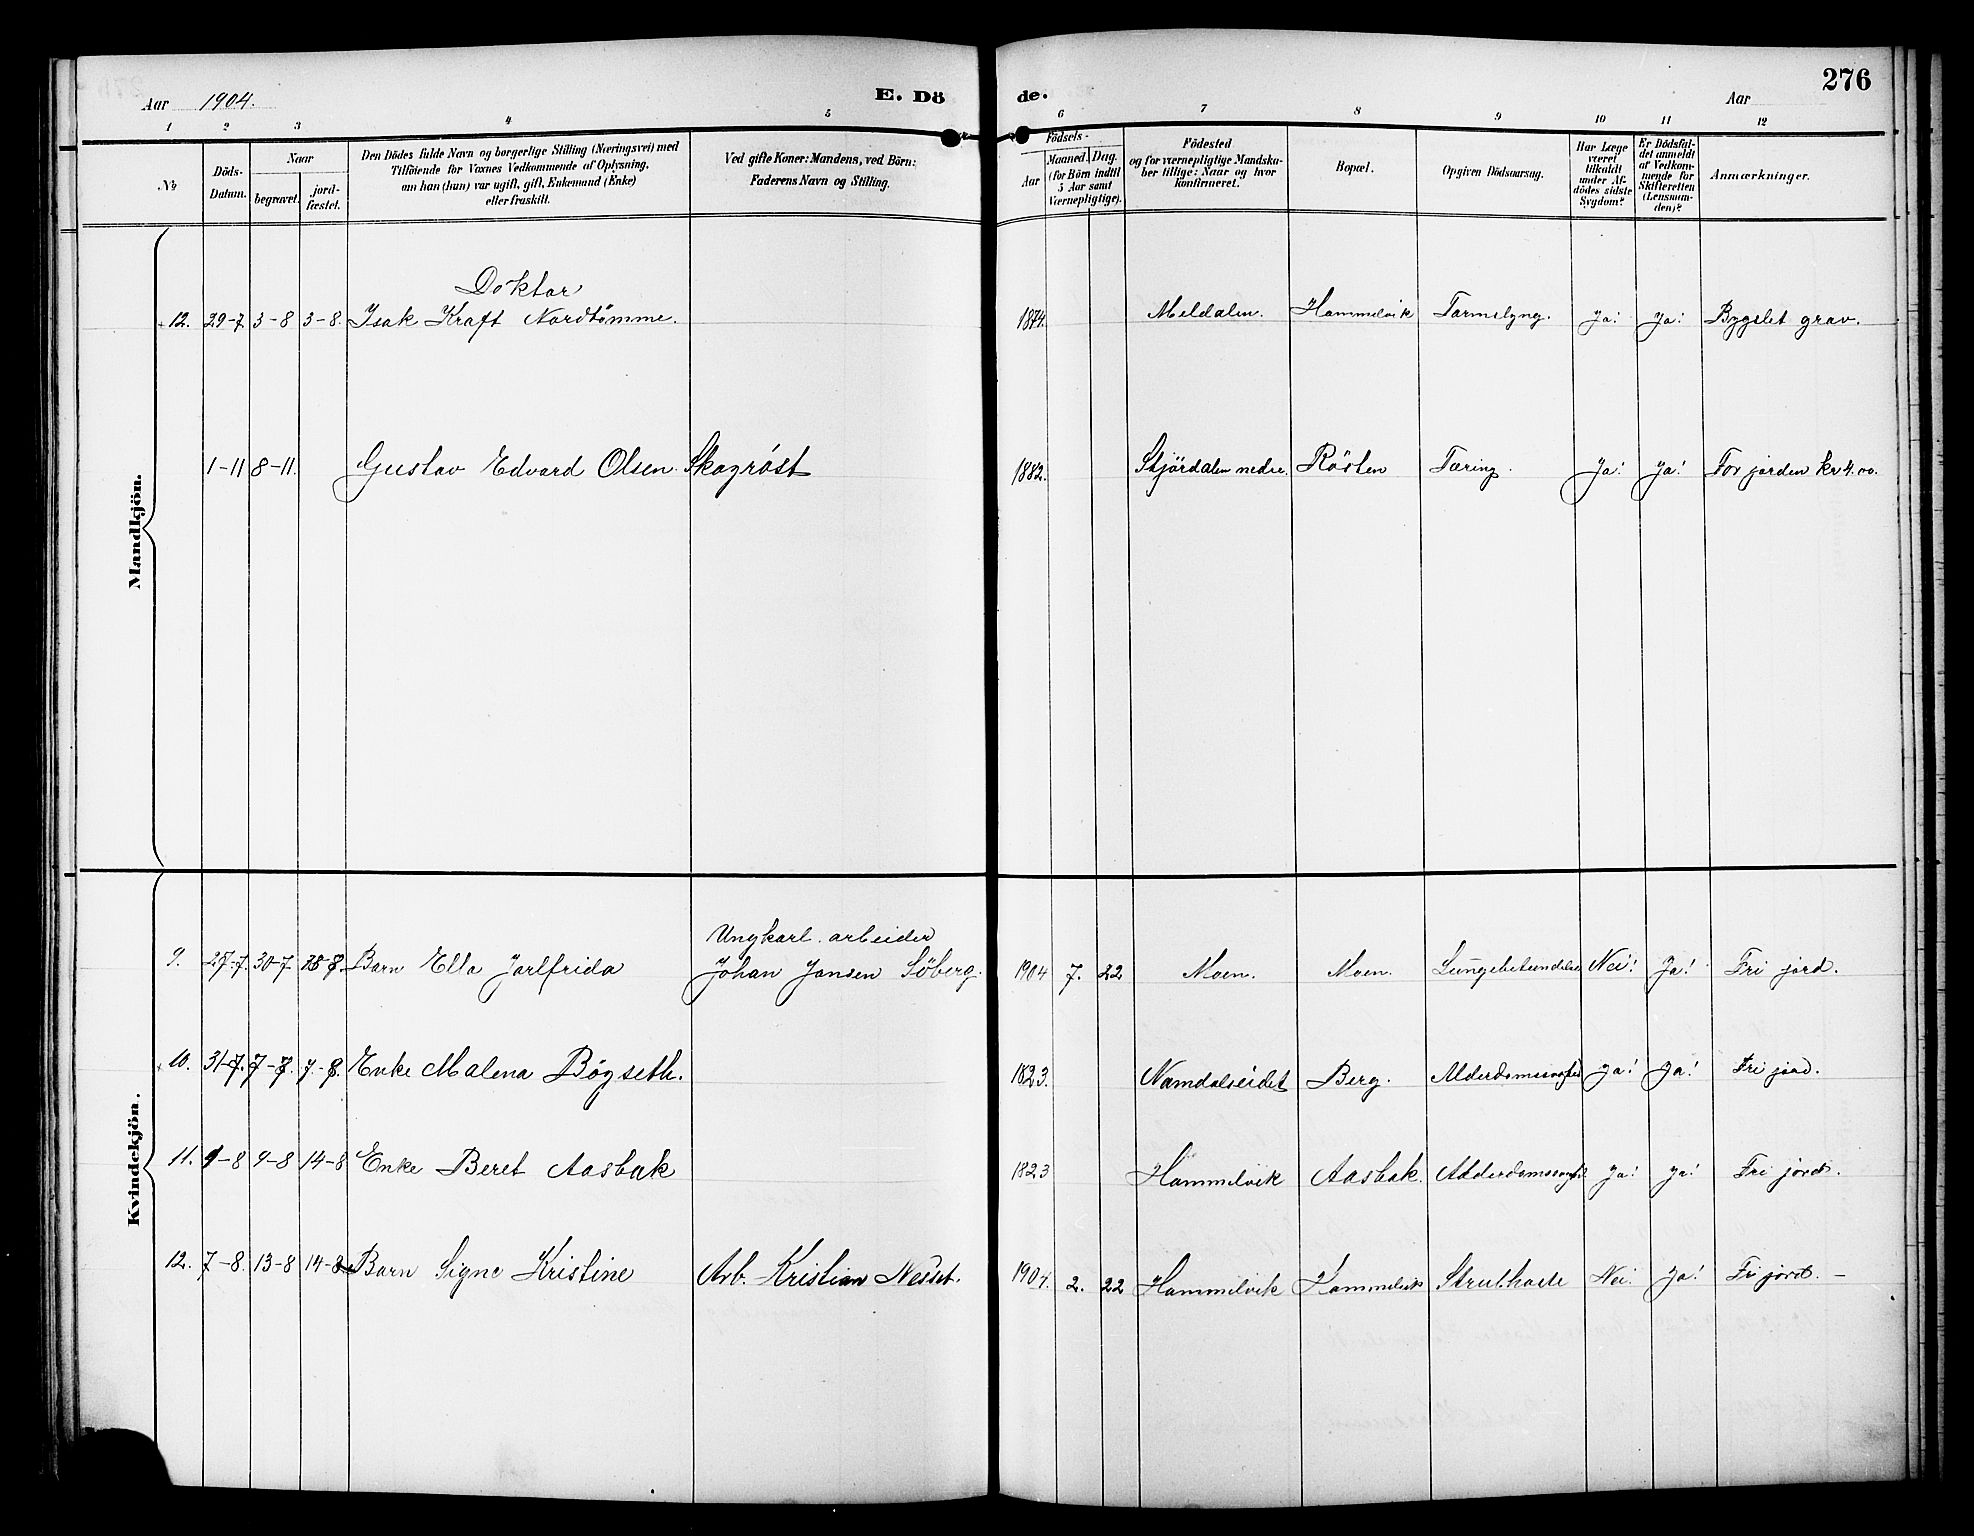 Aar 1904.
E. Dö
de.
Aar
276
1 2 3 4 5 6 7 8 9 10 11 12
№
Döds-
Datum.
Naar
begravet.
jord-
fæstet.
Den Dödes fulde Navn og borgerlige Stilling (Næringsvei) med
Tilföiende for Voxnes Vedkommende af Oplysning,
om han (hun) var ugift, gift, Enkemand (Enke)
eller fraskilt.
Ved gifte Koner: Mandens, ved Börn:
Faderens Navn og Stilling.
Födsels-
Aar
Maaned. Dag.
(for Börn indtil
5 Aar samt
Værnepligtige).
Födested
og for værnepligtige Mandska-
ber tillige: Naar og hvor
konfirmeret.
Bopæl.
Opgiven Dödsaarsag.
Har Læge
været
tilkaldt
under Af-
dödes sidste
Sygdom?
Er Dödsfal-
det anmeldt
af Vedkom-
mende for
Skifteretten
(Lensman-
den)?
Anmærkninger.
Mandkjön.
Doktor
12. 29-7 3-8 3-8. Isak Kraft Nordtömme. 1874. Meldalen. Hommelvik Tarmslyng. Ja! Ja! Bygslet grav.
1-11 8-11. Gustav Edvard Olsen Skogröst 1882. Stjördalen nedre. Rösten Tæring. Ja! Ja! For jorden kr 4.00.
Kvindekjön.
Ungkarl. arbeider
9. 27-7. 30-7 Barn Ella Jarlfrida Johan Jansen Söberg. 1904 7. 22 Moen. Moen. Lungebetændelse Nei! Ja! Fri jord.
10. 31-7. 7-8. 7-8. Enke Malena Bögseth. 1823. Namdalseidet Berg. Ja! Ja! Fri jord.
11. 1-8 9-8 14-8 Enke Beret Aasbak 1823 Hommelvik Aasbak. Ja! Ja! Fri jord.
12. 7-8. 13-8 14-8 Barn Signe Kristine Arb. Kristian Nesset. 1904. 2. 22 Hommelvik Hommelvik Struthoste Nei! Ja! Fri jord. —